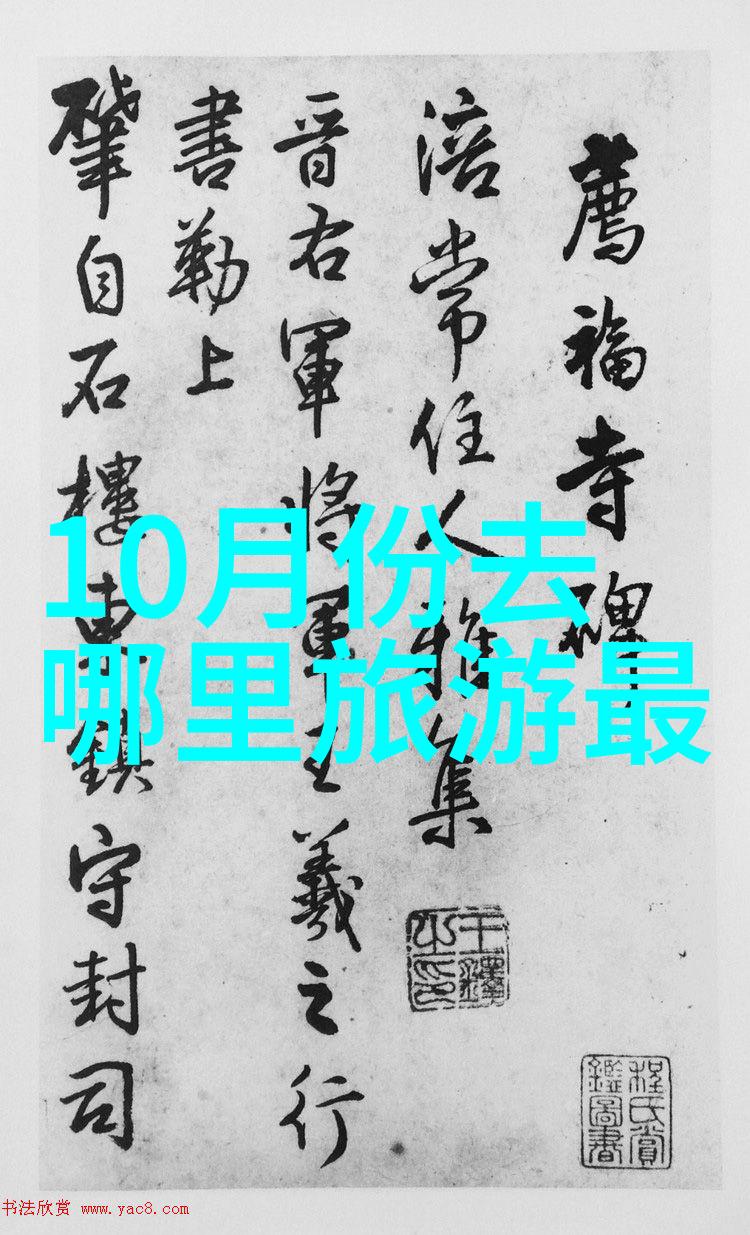 薦福寺碑
涪常住人雅集
晋右軍將軍王羲之行
書勒上
肇自石樓東鎮守封司
10月份去
哪里旅游最
王鐸之印
程氏賞鑑圖書
书法欣赏 www.yac8.com